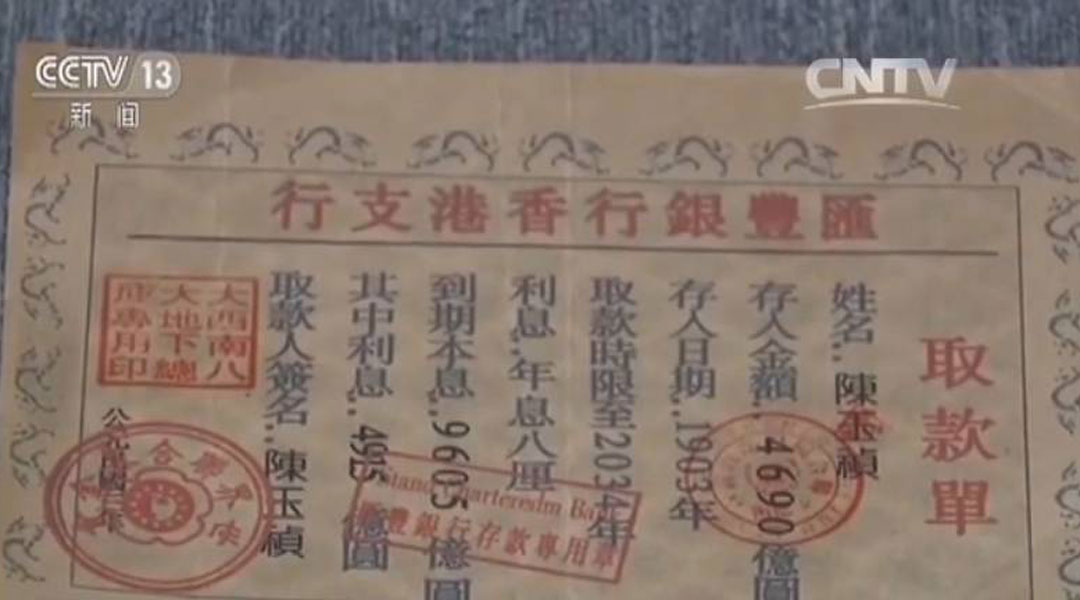 CCTV 13
新闻
CNTV
匯豐銀行香港支行
取款單
姓名：陳玉禎
存入金額：4690億圓
存入日期：1903年
取款時限至2034年
利息：年息八厘
到期本息：9605億圓
其中利息：4915億圓
取款人簽名：陳玉禎
大西南八
大地下總
庫專用印
匯豐銀行存款專用章